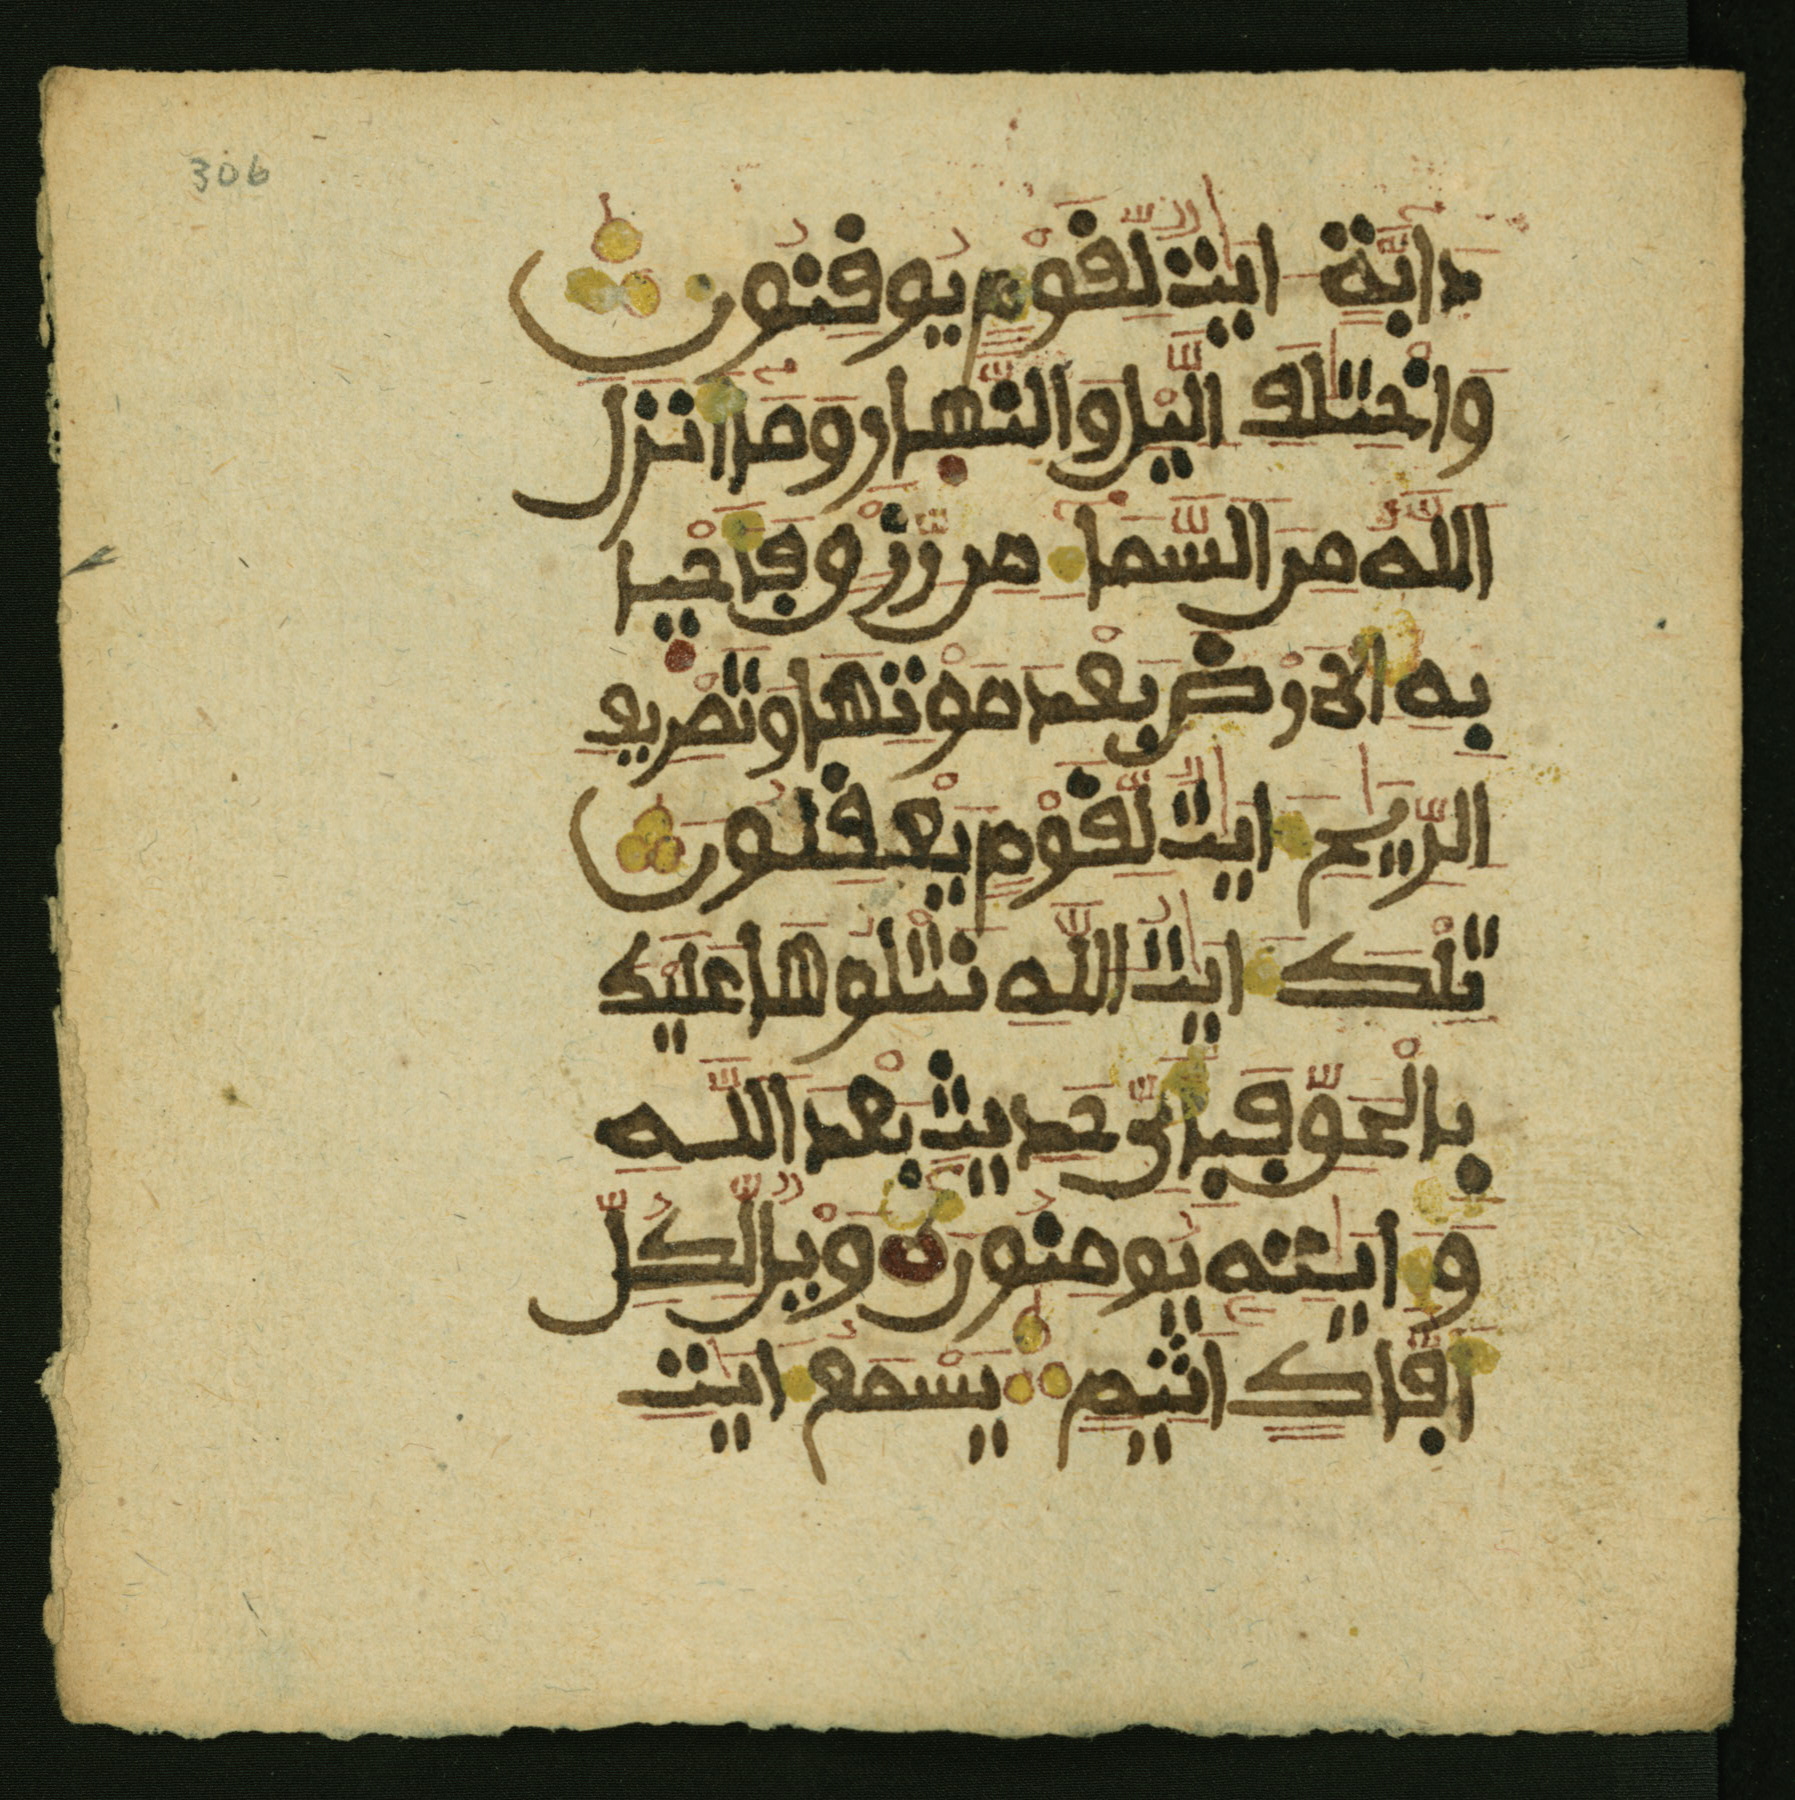 306
دَآبَّةٍ ءَايَٰتٌ لِّقَوْمٍ يُوقِنُونَ
وَاخْتِلَٰفِ الَّيْلِ وَالنَّهَارِ وَمَآ أَنزَلَ
اللَّهُ مِنَ السَّمَآءِ مِن رِّزْقٍ فَأَحْيَا
بِهِ الَارْضَ بَعْدَ مَوْتِهَا وَتَصْرِيفِ
الرِّيَٰحِ ءَايَٰتٌ لِّقَوْمٍ يَعْقِلُونَ
تِلْكَ ءَايَٰتُ اللَّهِ نَتْلُوهَا عَلَيْكَ
بِالْحَقِّ فَبِأَيِّ حَدِيثٍ بَعْدَ اللَّهِ
وَءَايَٰتِهِ يُومِنُونَ وَيْلٌ لِّكُلِّ
أَفَّاكٍ أَثِيمٍ يَسْمَعُ ءَايَٰتِ